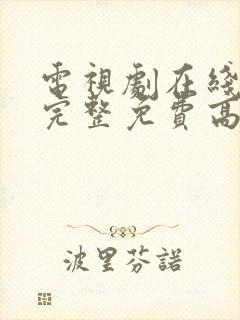 電視劇在綫
完整免費高
波里芬諾